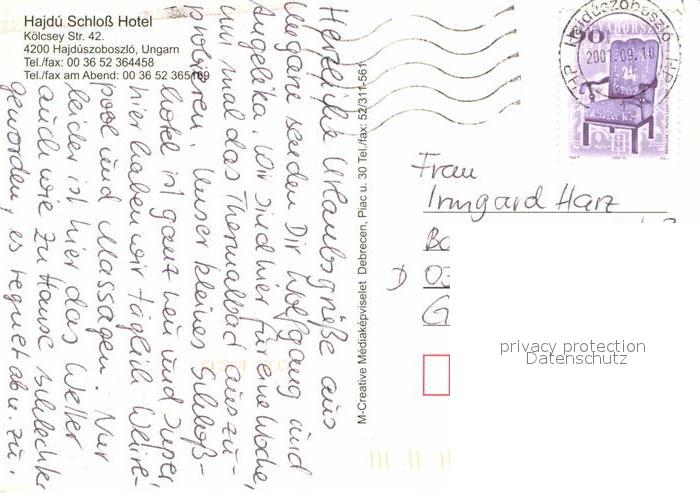 Hajdú Schloß Hotel
Kölcsey Str. 42.
4200 Hajdúszoboszló, Ungarn
Tel./fax: 00 36 52 364458
Tel./fax am Abend: 00 36 52 365169
Herzliche Urlaubsgrüße aus
Ungarn senden Dir Wolfgang und
Angelika. Wir sind hier für eine Woche,
um mal das Thermalbad auszu-
probieren. Unser kleines Schloß-
hotel ist ganz neu und super,
hier haben wir täglich
pool und Massagen. Nur
leider ist hier das Wetter
auch wie zu Hause schlecht
geworden, es regnet ab u. zu.
M-Creative Médiaképviselet Debrecen, Piac u. 30 Tel./fax: 52/311-561
90
MAGYARORSZÁG
Hajdúszoboszló
2001.09.10
24
Frau
Irmgard Harz
D
privacy protection
Datenschutz